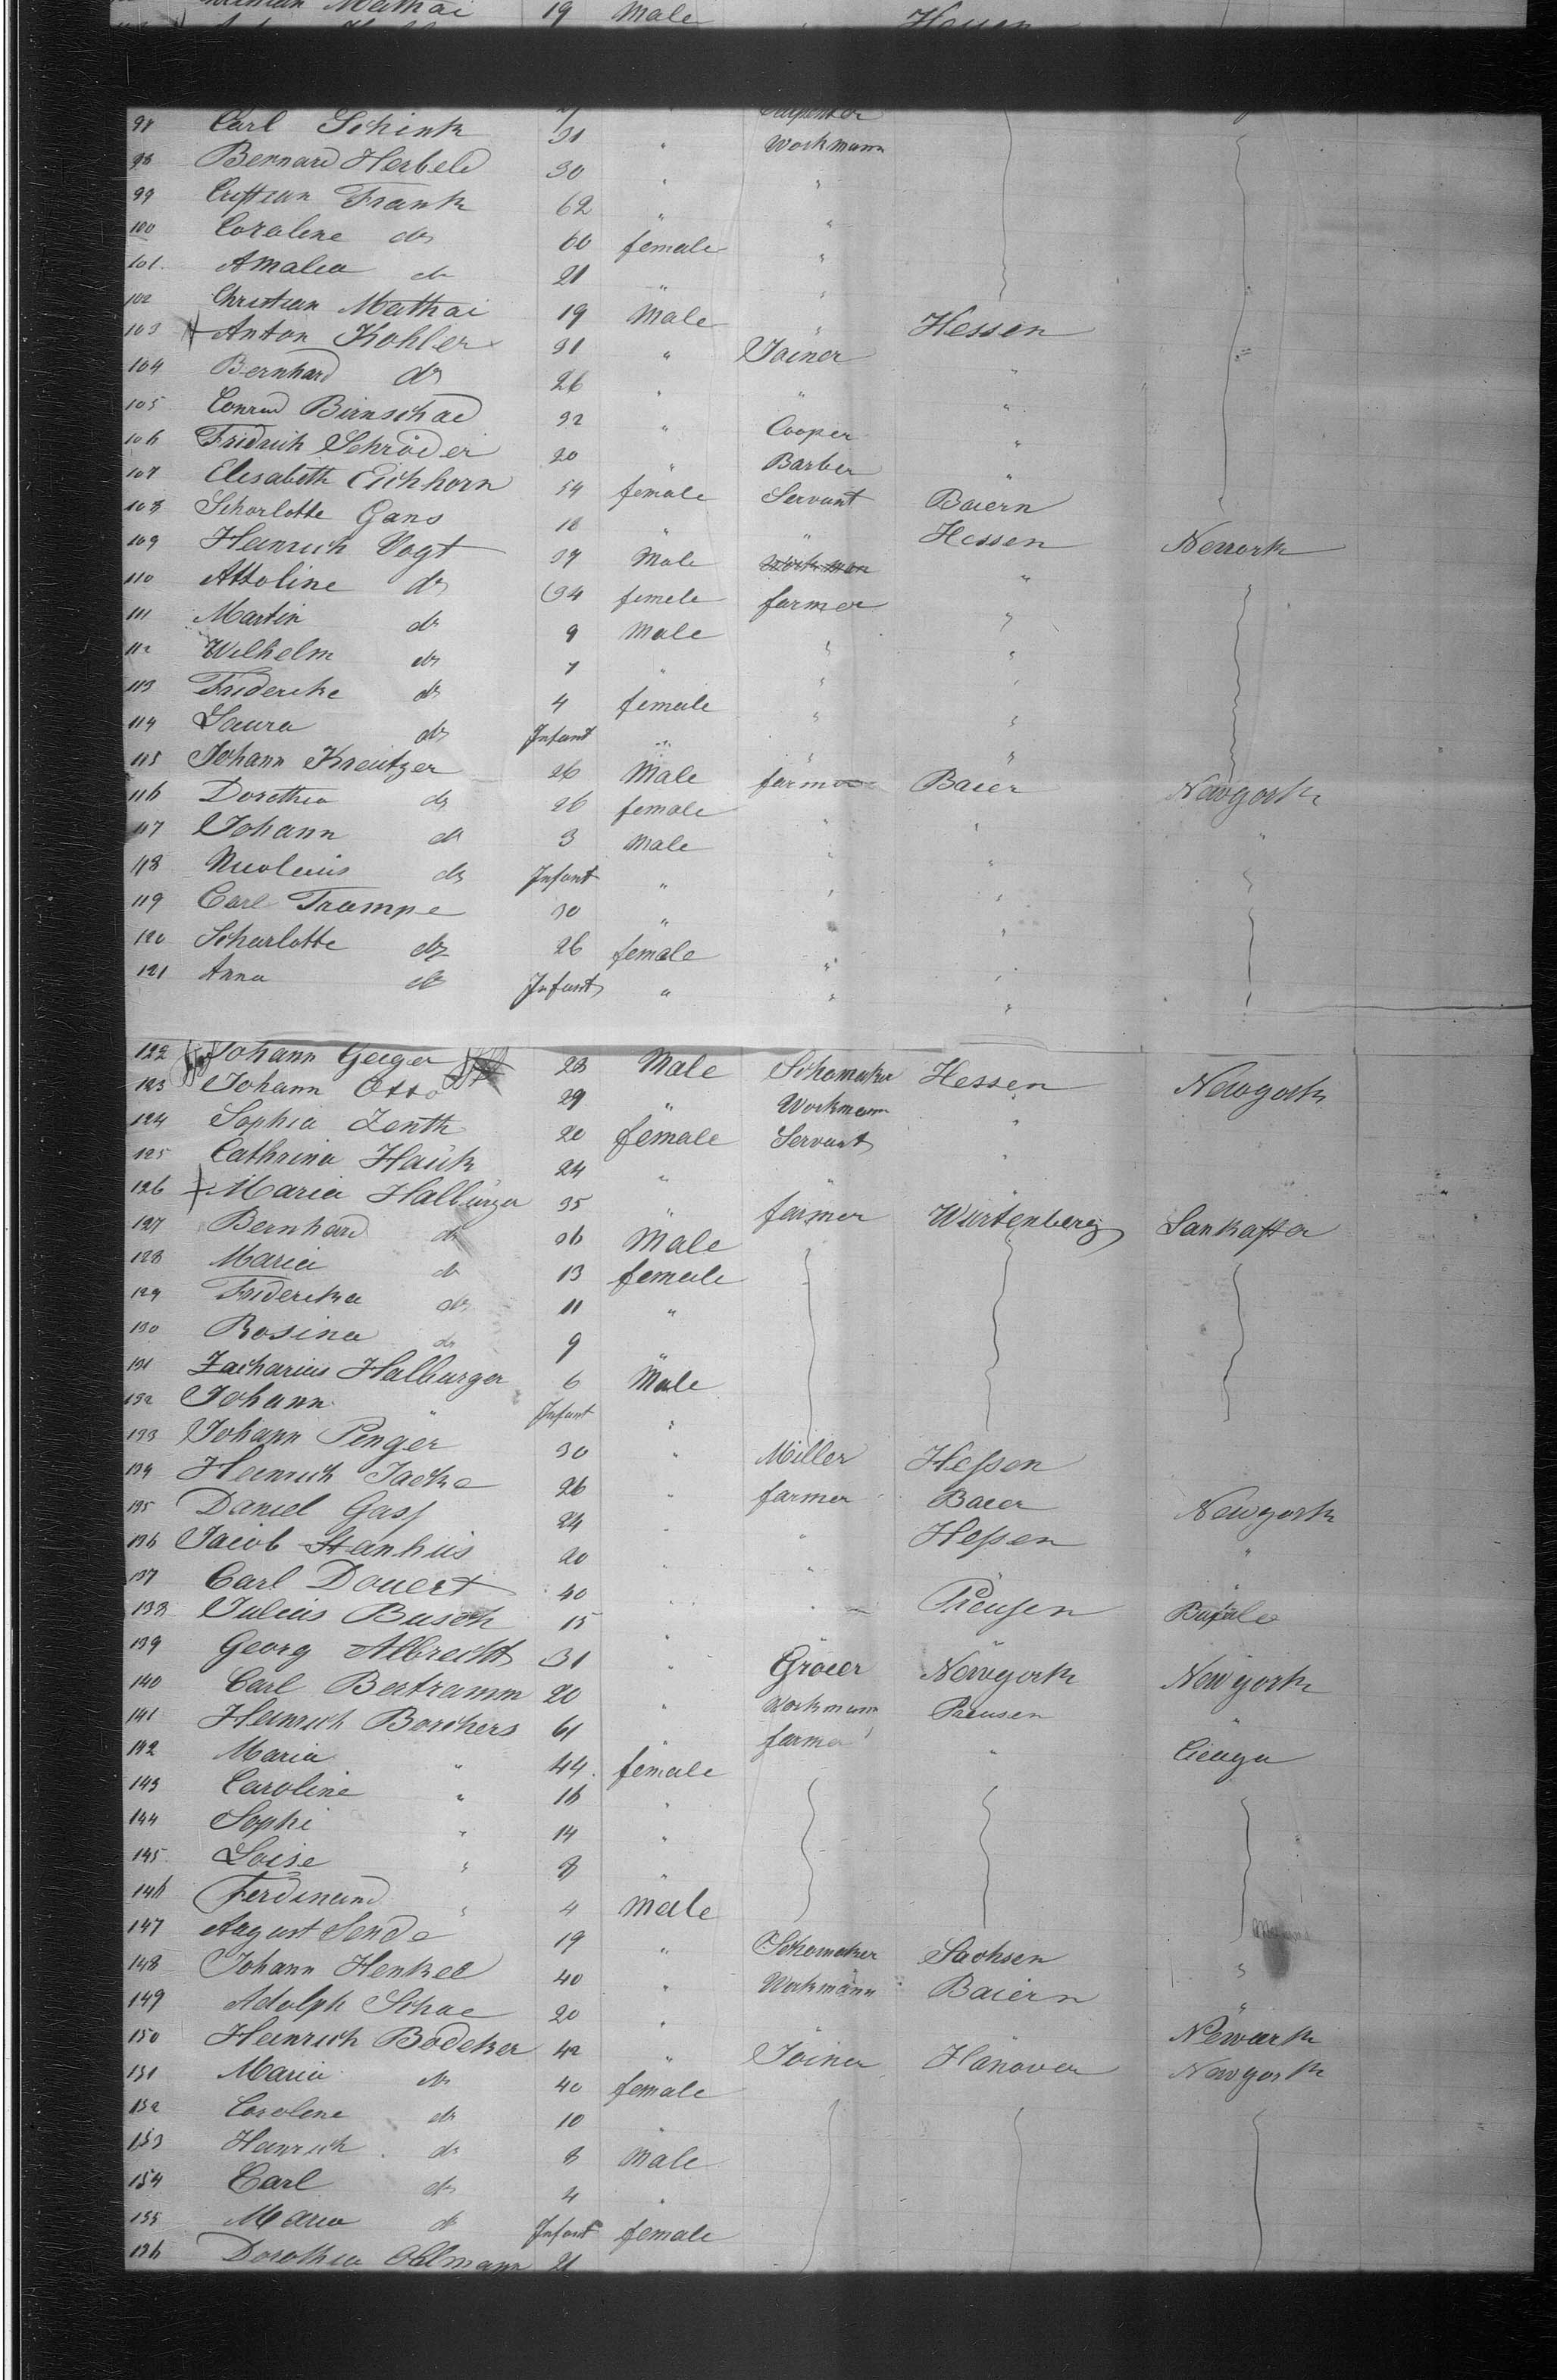 Mathai 19 Male Hessen
Carpenter
98 Carl Schink 31 " Workmann
98 Bernard Herbele 30 " "
99 Cristian Frank 62 " "
100 Coraline do 60 female "
101 Amalia do 21 " "
102 Christian Mathai 19 Male " Hessen
103 Anton Kohler 31 " Joiner "
104 Bernhard do 26 " " "
105 Conrad Birnschad 32 " Cooper "
106 Fridrich Schröder 20 " Barber "
107 Elisabeth Eichhorn 54 female Servant Baiern
108 Scharlotte Gans 18 " " Hessen
109 Heinrich Vogt 37 Male Workman " Neuork
110 Attoline do 34 female farmer "
111 Martin do 9 Male " "
112 Wilhelm do 7 " " "
113 Friderike do 4 female " "
114 Laura do Infant " " "
115 Johann Kreutzer 26 Male farmer Baier Newyork
116 Dorethea do 26 female " " "
117 Johann do 3 Male " " "
118 Nicolaus do Infant " " "
119 Carl Trampe 30 " " "
120 Scharlotte do 26 female " "
121 Anna do Infant " " "
122 Johann Geiger 28 Male Schomaker Hessen Newyork
123 Johann Otto 29 " Workmann "
124 Sophia Zenth 20 female Servant "
125 Cathrina Hauk 24 " "
126 Maria Halburger 35 " farmer Würtenberg Lankaster
127 Bernhard do 36 Male
128 Maria do 13 female
129 Friderika do 11 "
130 Rosina do 9 "
131 Zacharias Halburger 6 Male
132 Johann " Infant "
133 Johann Penger 30 " Miller Hessen
134 Heinrich Jacke 26 " farmer Baier Newyork
135 Daniel Gass 24 " " Hessen "
136 Jacob Stanhus 20 " " " "
137 Carl Douert 40 " " Preusen Bufalo
138 Julius Busch 15 " "
139 Georg Albrecht 31 " Groier Newyork Newyork
140 Carl Bertramm 20 " Workmann Preusen "
141 Heinrich Borchers 61 " farmer " Cicaga
142 Maria " 44 female
143 Caroline " 16 "
144 Sophi " 14 "
145 Loise " 8 "
146 Ferdinand " 4 Male
147 August Sende 19 " Schomaker Sachsen "
148 Johann Henkel 40 " Workmann Baiern "
149 Adolph Schae 20 " Newark
150 Heinrich Bödeker 42 " Joiner Hanover Newyork
151 Maria do 40 female
152 Caroline do 10 "
153 Heinrich do 8 Male
154 Carl do 4 "
155 Maria do Infant female
156 Dorothea Ohlmann 21